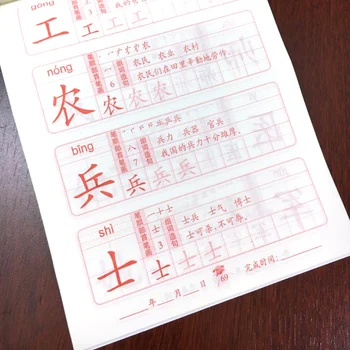 gōng
工 工 工 工
nóng
农 农 农 农 农
笔顺部首笔画
6
组词造句
农民 农业 农村
农民们在田里辛勤地劳作。
bīng
兵 兵 兵 兵 兵
笔顺部首笔画
八 7
组词造句
兵力 兵器 官兵
我国的兵力十分雄厚。
shì
士 士 士 士 士
笔顺部首笔画
一十士
士 3
组词造句
士兵 士气 博士
士可杀,不可辱。
年 月 日
69
完成时间: